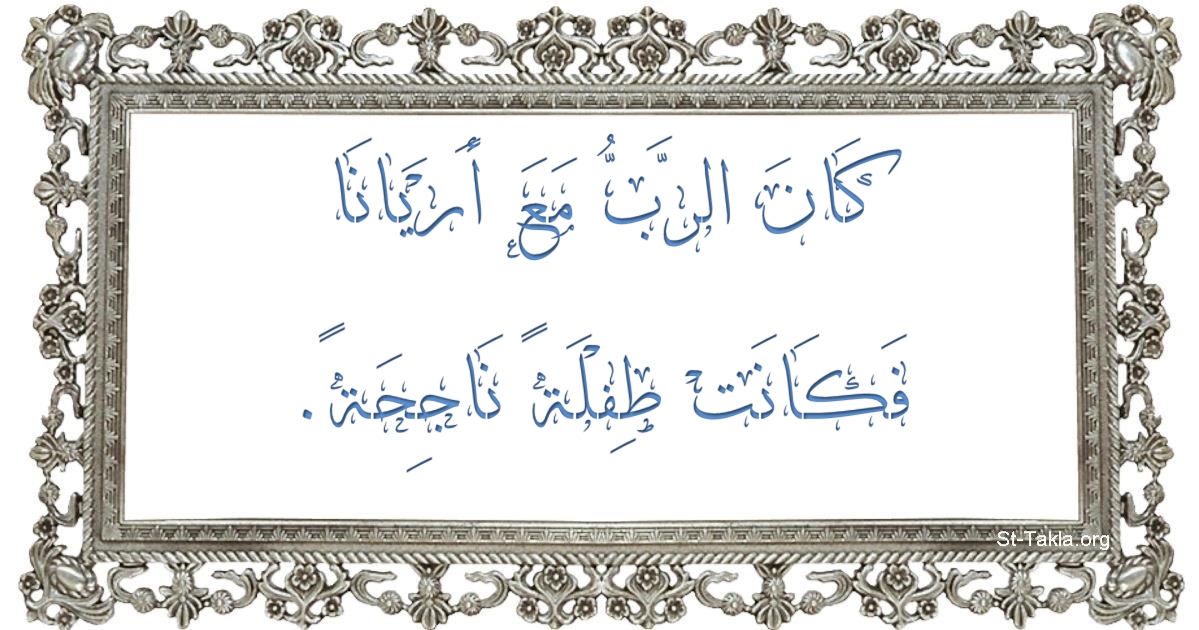 كَانَ الرَّبُّ مَعَ أَريَانَا
فَكَانَتْ طِفْلَةً نَاجِحَةً.
St-Takla.org